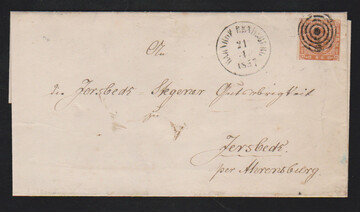 BAHNHOF RENDSBURG
21
1
1857
An
die Jersbeck Stegener Gutsobrigkeit
zu
Jersbeck
per Ahrensburg